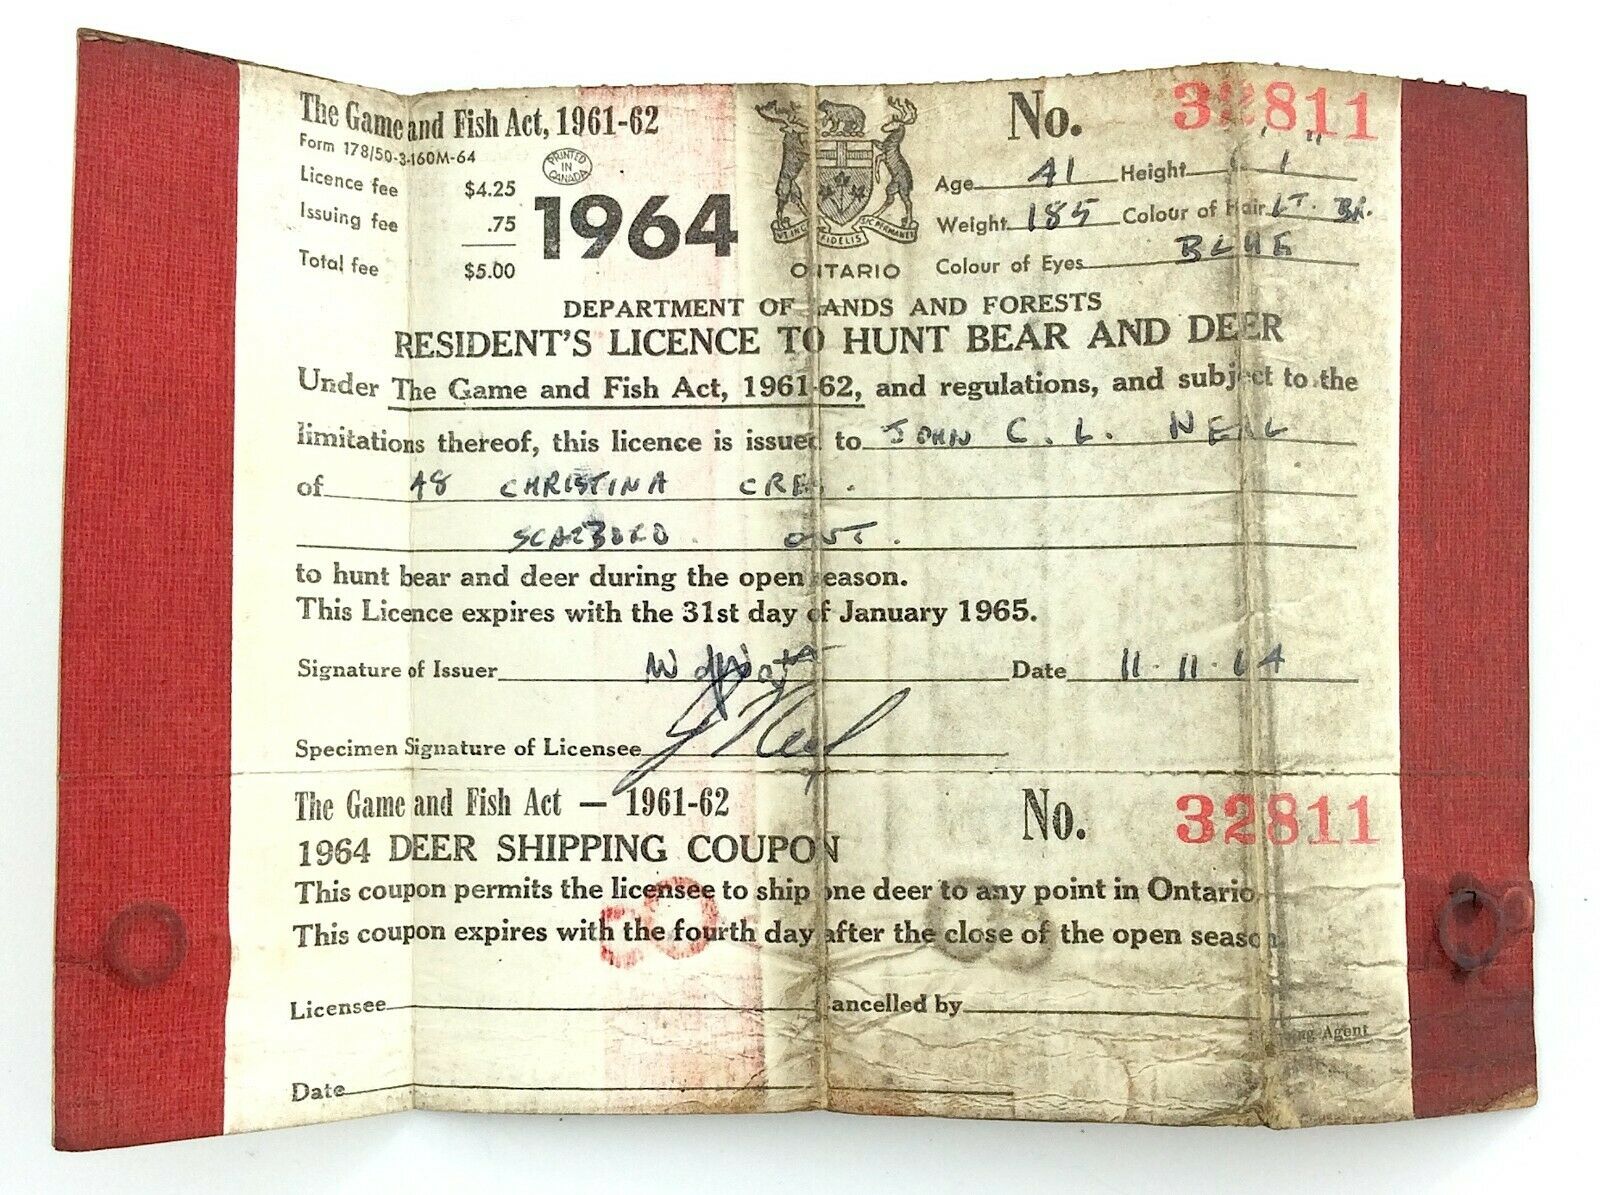 The Game and Fish Act, 1961-62
No. 32811
Form 178/50-3-160M-64
PRINTED IN CANADA
Licence fee $4.25
Issuing fee .75
Total fee $5.00
1964
ONTARIO
Age 41 Height
Weight 185 Colour of Hair LT. BR.
Colour of Eyes BLUE
DEPARTMENT OF LANDS AND FORESTS
RESIDENT'S LICENCE TO HUNT BEAR AND DEER
Under The Game and Fish Act, 1961-62, and regulations, and subject to the
limitations thereof, this licence is issued to JOHN C. L. NEAL
of 48 CHRISTINA CRES.
SCARBORO ONT.
to hunt bear and deer during the open season.
This Licence expires with the 31st day of January 1965.
Signature of Issuer Date 11.11.64
Specimen Signature of Licensee
The Game and Fish Act — 1961-62
No. 32811
1964 DEER SHIPPING COUPON
This coupon permits the licensee to ship one deer to any point in Ontario
This coupon expires with the fourth day after the close of the open season.
Licensee Cancelled by
Agent
Date